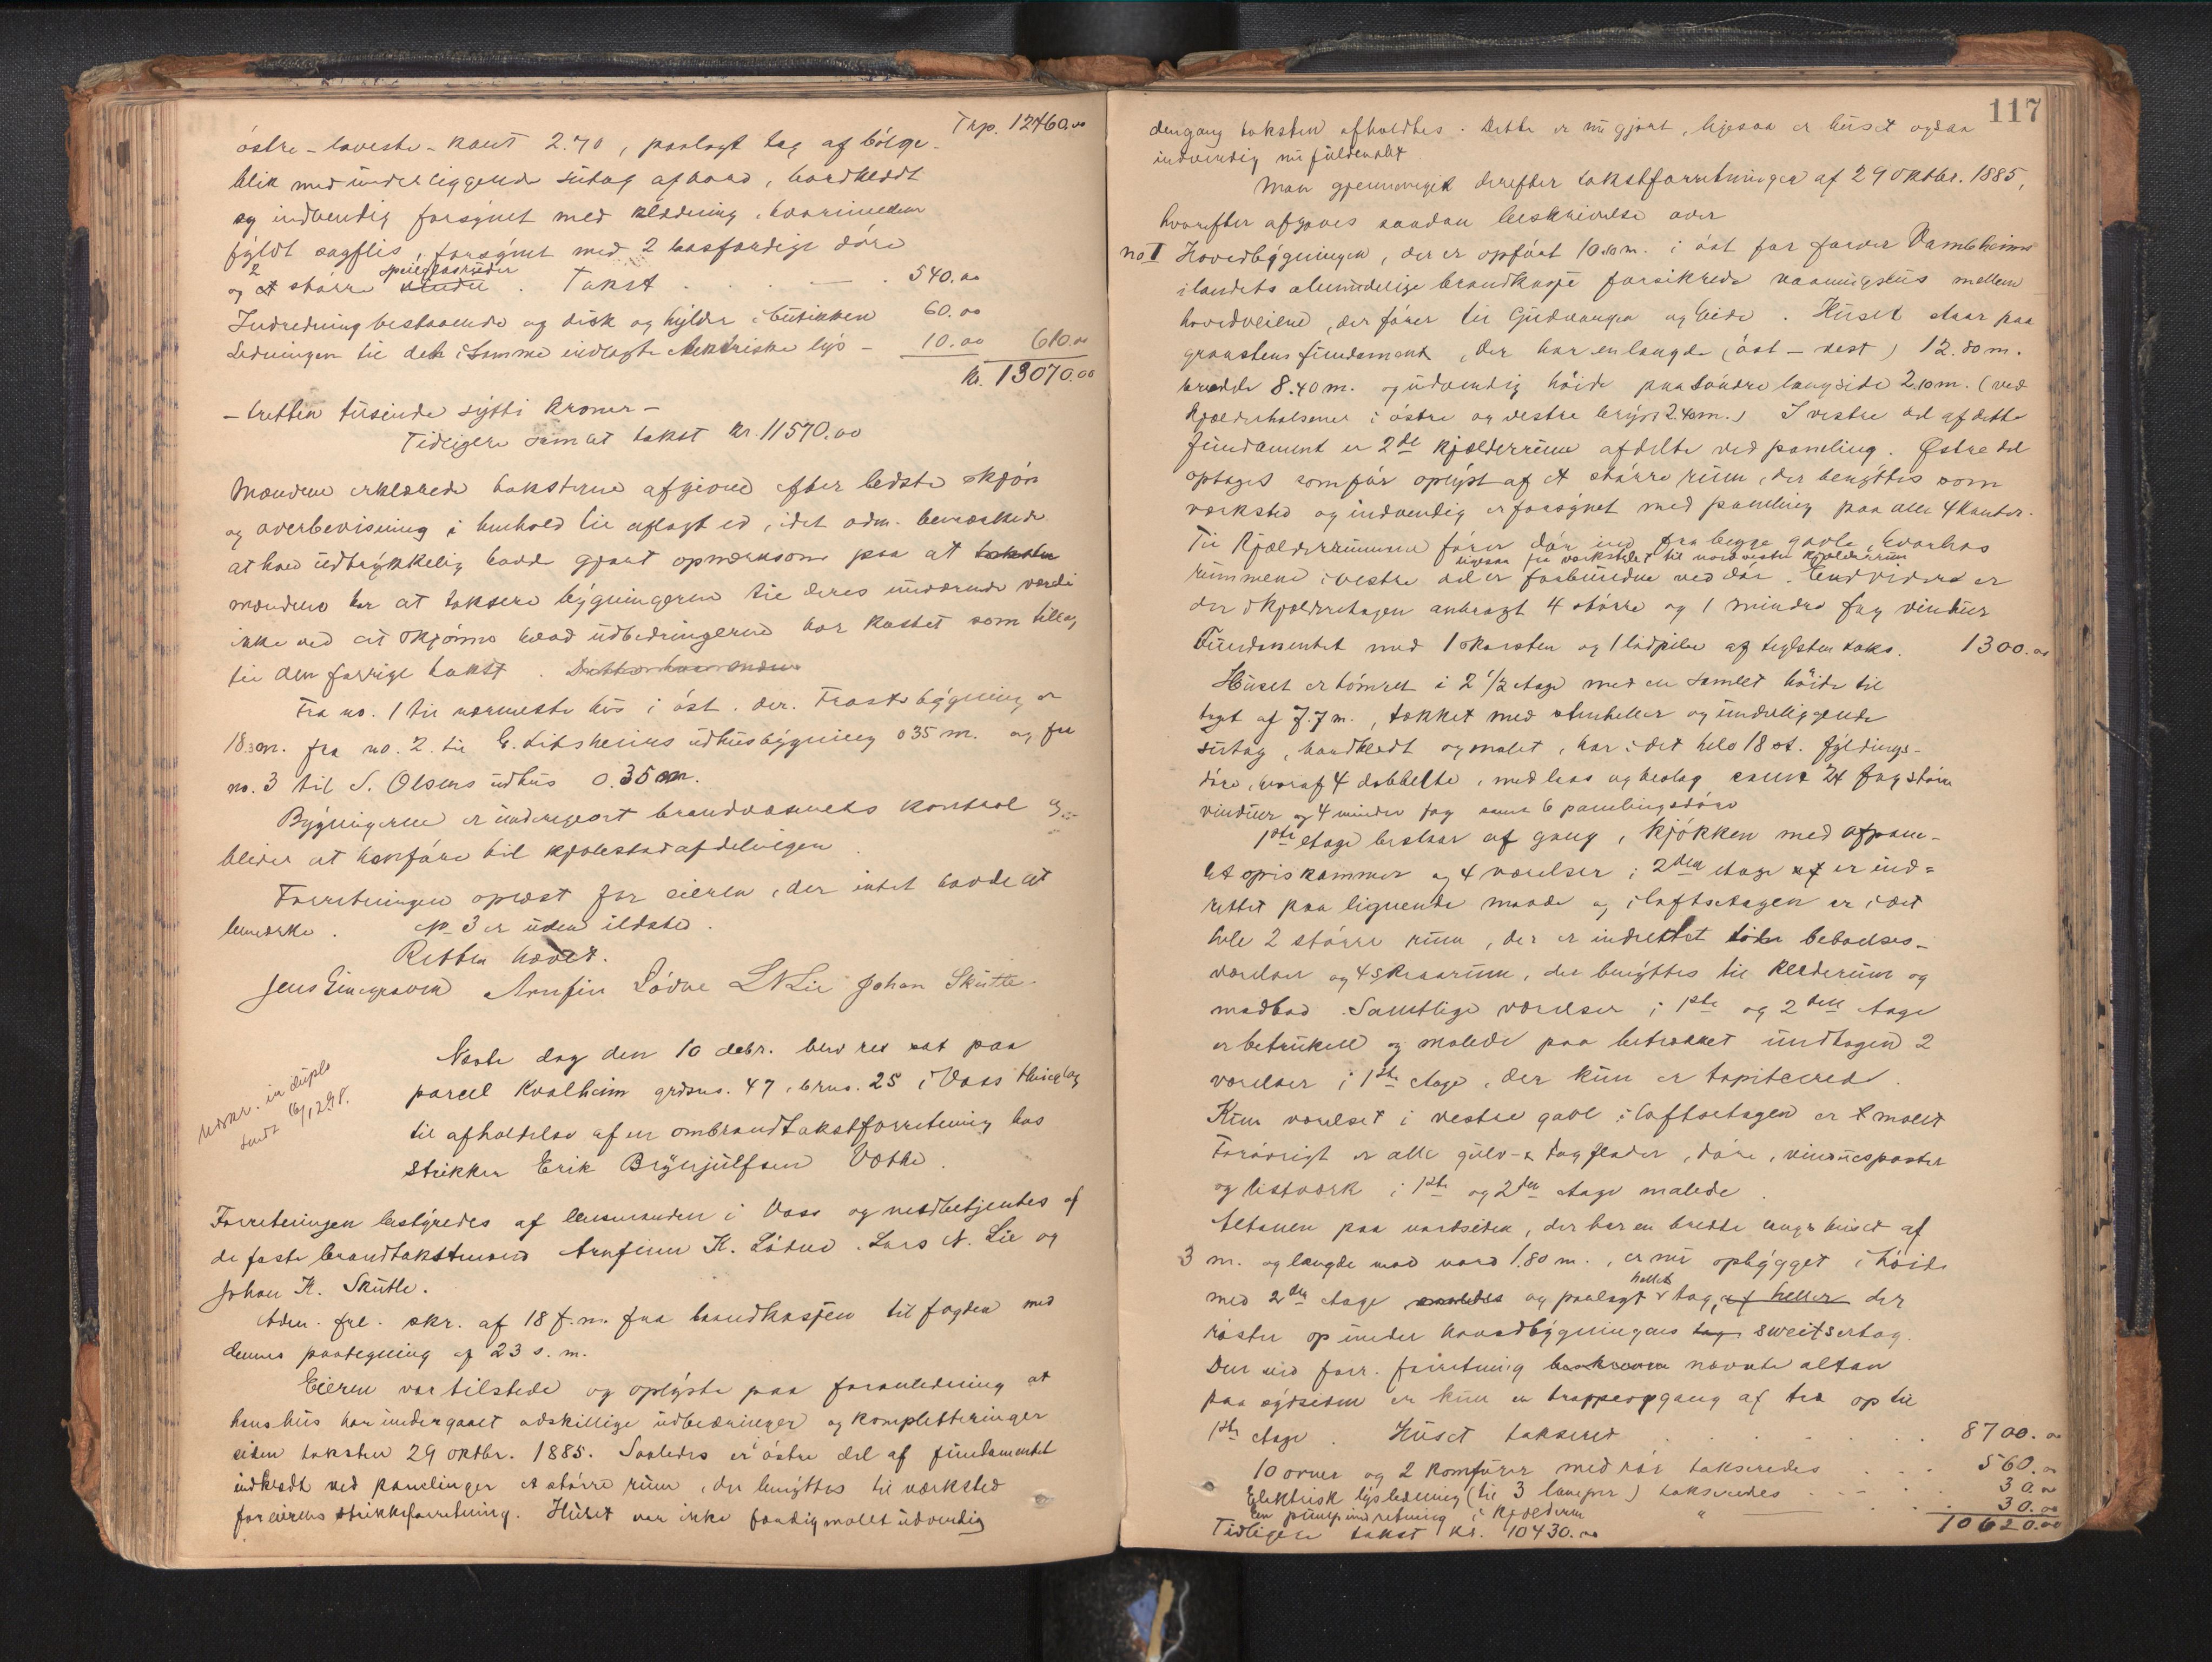 Trp. 12460.00
östre - laveste - kant 2.70, paalagt tag af bölge-
blik med underliggende sutag af bord, bordklædt
og indvendig forsynet med klædning, hvorimellem
fyldt sagflis, forsynet med 2 laasfærdige döre
og 2 större speilglasruder. Takst . . . — . 540.00
Indredning bestaaende af disk og hylder i butikken 60.00
Ledningen til det i samme indlagte elektriske lys - 10.00 610.00
Kr. 13070.00
- tretten tusinde sytti kroner -
Tidligere samlet takst kr. 11570.00
Mændene erklærede taksterne afgivne efter bedste skjön
og overbevisning i henhold til aflagt ed, idet adm. bemærkede
at have udtrykkelig havde gjort opmærksom paa at taksten
mændene har at taksere bygningerne til deres nuværende værdi
ikke ved at skjönne hvad udbedringerne har kostet som tillæg
til den forrige takst.
Fra no. 1 til nærmeste hus i öst. der. Trosts bygning er
18.30m. fra no. 2. til E. Litsheims udhusbygning 0 35 m. og fra
no. 3 til S. Olsens udhus 0.35 m.
Bygningerne er undergivet brandvæsenets kontrol og
bliver at henföre til kjöbstadafdelingen.
Forretningen oplæst for eieren, der intet havde at
bemærke. No 3 er uden ildsted.
Retten hævet.
Jens Gjerägraven Arnfin Lödve LNLie Johan Skutle.
Næste dag den 10 debr. blev ret sat paa
parcel Kvalheim grdsno. 47, brno. 25 i Vass thinglag
til afholdelse af en ombrandtakstforretning hos
strikker Erik Brynjulfsen Væthe.
Udskr. in duplo
sendt 16/12 98.
Forretningen bestyredes af lensmanden i Voss og medbetjentes af
de faste brandtakstmænd Arnfinn K. Lödve, Lars N. Lie og
Johan K. Skutle.
Adm. frl. skr. af 18 f.m. fra brandkassen til fogden med
dennes paategning af 23 s. m.
Eieren var tilstede og oplyste paa foranledning at
hans hus har undergaaet adskillige udbedringer og kompletteringer
siden taksten 29 oktbr. 1885. Saaledes er östre del af fundamentet
indklædt ved panelinger et större rum, der benyttes til værksted
for eierens strikkeforretning. Huset var ikke færdig malet udvendig
117
dengang taksten afholdtes. Dette er nu gjort, ligesaa er huset ogsaa
indvendig nu fuldendt.
Man gjennemgik derefter takstforretningen af 29 oktbr. 1885,
hvorefter afgaves saadan beskrivelse over
no I Hovedbygningen, der er opfört 10.10 m. i öst for farver Vambheims
i landets almindelige brandkasse forsikrede vaaningshus mellem
hovedveiene, der förer til Gudvangen og Eide. Huset staar paa
graastensfundament, der har en længde (öst - vest) 12.80 m.
bredde 8.40 m. og udvendig höide paa söndre langside 2.10 m. (ved
kjælderhalsene i östre og vestre bryst 2.40 m.) I vestre del af dette
fundament er 2de kjælderrum afdelte ved paneling. Østre del
optages som för oplyst af et större rum, der benyttes som
værksted og indvendig er forsynet med paneling paa alle 4 kanter.
Til kjælderrummene förer dör ind fra begge gavle, hvorhos
ligesom fra værkstedet til nordvestre kjælderrum
rummene i vestre del er forbundne ved dör. Endvidere er
der i kjælderetagen anbragt 4 större og 1 mindre fag vinduer
Fundamentet med 1 skorsten og 1 ildpibe af teglsten taks. 1300.00
Huset er tömret i 2 1/2 etage med en samlet höide til
taget af 7.7 m., tækket med stenheller og underliggende
sutag, bordklædt og malet, har i det hele 18 st. fyldings-
döre, hvoraf 4 dobbelte, med laas og beslag samt 24 fag större
vinduer og 4 mindre fag samt 6 panelingsdöre
1ste etage bestaar af gang, kjökken med afpane-
let spiskammer og 4 værelser, i 2den etage af er ind=
rettet paa lignende maade og i loftsetagen er i det
hele 2 större rum, der er indrettet beboelses-
værelser og 4 skraarum, der benyttes til klæderum og
madbod. Samtlige værelser i 1ste og 2den etage
er betrukne og malede paa betrækket undtagen 2
værelser i 1ste etage, der kun er tapitserede.
Kun værelset i vestre gavl i loftsetagen er malet
Forövrigt er alle gulv- & tagflader, döre, vinduesposter
og listværk i 1ste og 2den etage malede.
Altanen paa nordsiden, der har en bredde langs huset af
3 m. og længde mod nord 1.80 m., er nu opbygget i höide
med 2den etage og paalagt hellet tag, af heller der
röster op under hovedbygningens tag sweitsertag.
Den ved forr. forretning nævnte altan
paa sydsiden er kun en trappeopgang af træ op til
1ste etage. Huset takseret . . . . . . 8700.00
10 ovner og 2 komfurer med rör takseredes . . . 560.00
Elektrisk lysledning (til 3 lamper) takseredes . . . 30.00
En pumpeindretning i kjælderen " . . . 30.00
Tidligere takst kr. 10430.00 10620.00